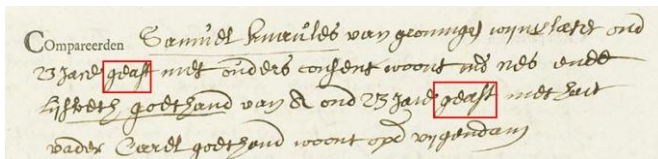 Compareerden Samuel knuules van groninge wijnlater oud
23 Jare geast met ouders consent woont ins nes ende
Lijsbeth goethand van A oud 23 Jare geast met haer
vader Carel goethand woont opd vijgendam